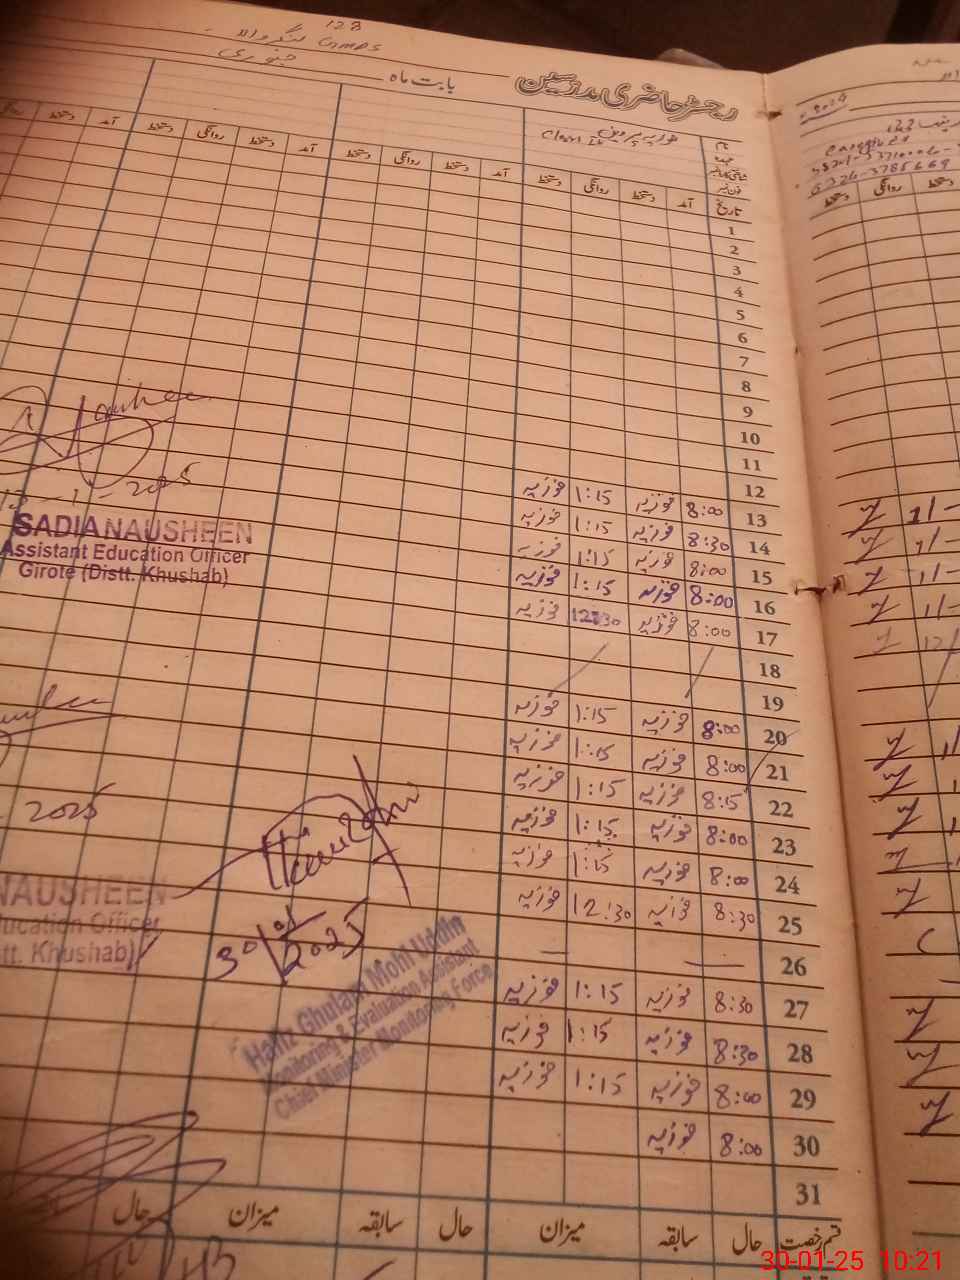 128
GMPS
جنوری
بابت ماہ
رجسٹر حاضری مدرسین
نام فوزیہ پروین
عہدہ Class IV
شناختی کارڈ نمبر
فون نمبر
تاریخ آمد دستخط روانگی دستخط آمد دستخط روانگی دستخط آمد دستخط روانگی دستخط آمد دستخط
1
2
3
4
5
6
7
8
9
10
11
12
13 8:00 فوزیہ 1:15 فوزیہ
14 8:30 فوزیہ 1:15 فوزیہ
15 8:00 فوزیہ 1:15 فوزیہ
16 8:00 فوزیہ 1:15 فوزیہ
17 8:00 فوزیہ 12:30 فوزیہ
18
19
20 8:00 فوزیہ 1:15 فوزیہ
21 8:00 فوزیہ 1:15 فوزیہ
22 8:15 فوزیہ 1:15 فوزیہ
23 8:00 فوزیہ 1:15 فوزیہ
24 8:00 فوزیہ 1:15 فوزیہ
25 8:30 فوزیہ 12:30 فوزیہ
26
27 8:30 فوزیہ 1:15 فوزیہ
28 8:30 فوزیہ 1:15 فوزیہ
29 8:00 فوزیہ 1:15 فوزیہ
30 8:00 فوزیہ
31
قسم رخصت حال سابقہ میزان حال سابقہ میزان حال
-1-2025
SADIA NAUSHEEN
Assistant Education Officer
Girote (Distt. Khushab)
2025
NAUSHEEN
Education Officer
Distt. Khushab)
30/01/2025
Hafiz Ghulam Mohi Uddin
Monitoring & Evaluation Assistant
Chief Minister Monitoring Force
دستخط روانگی دستخط
30-01-25 10:21